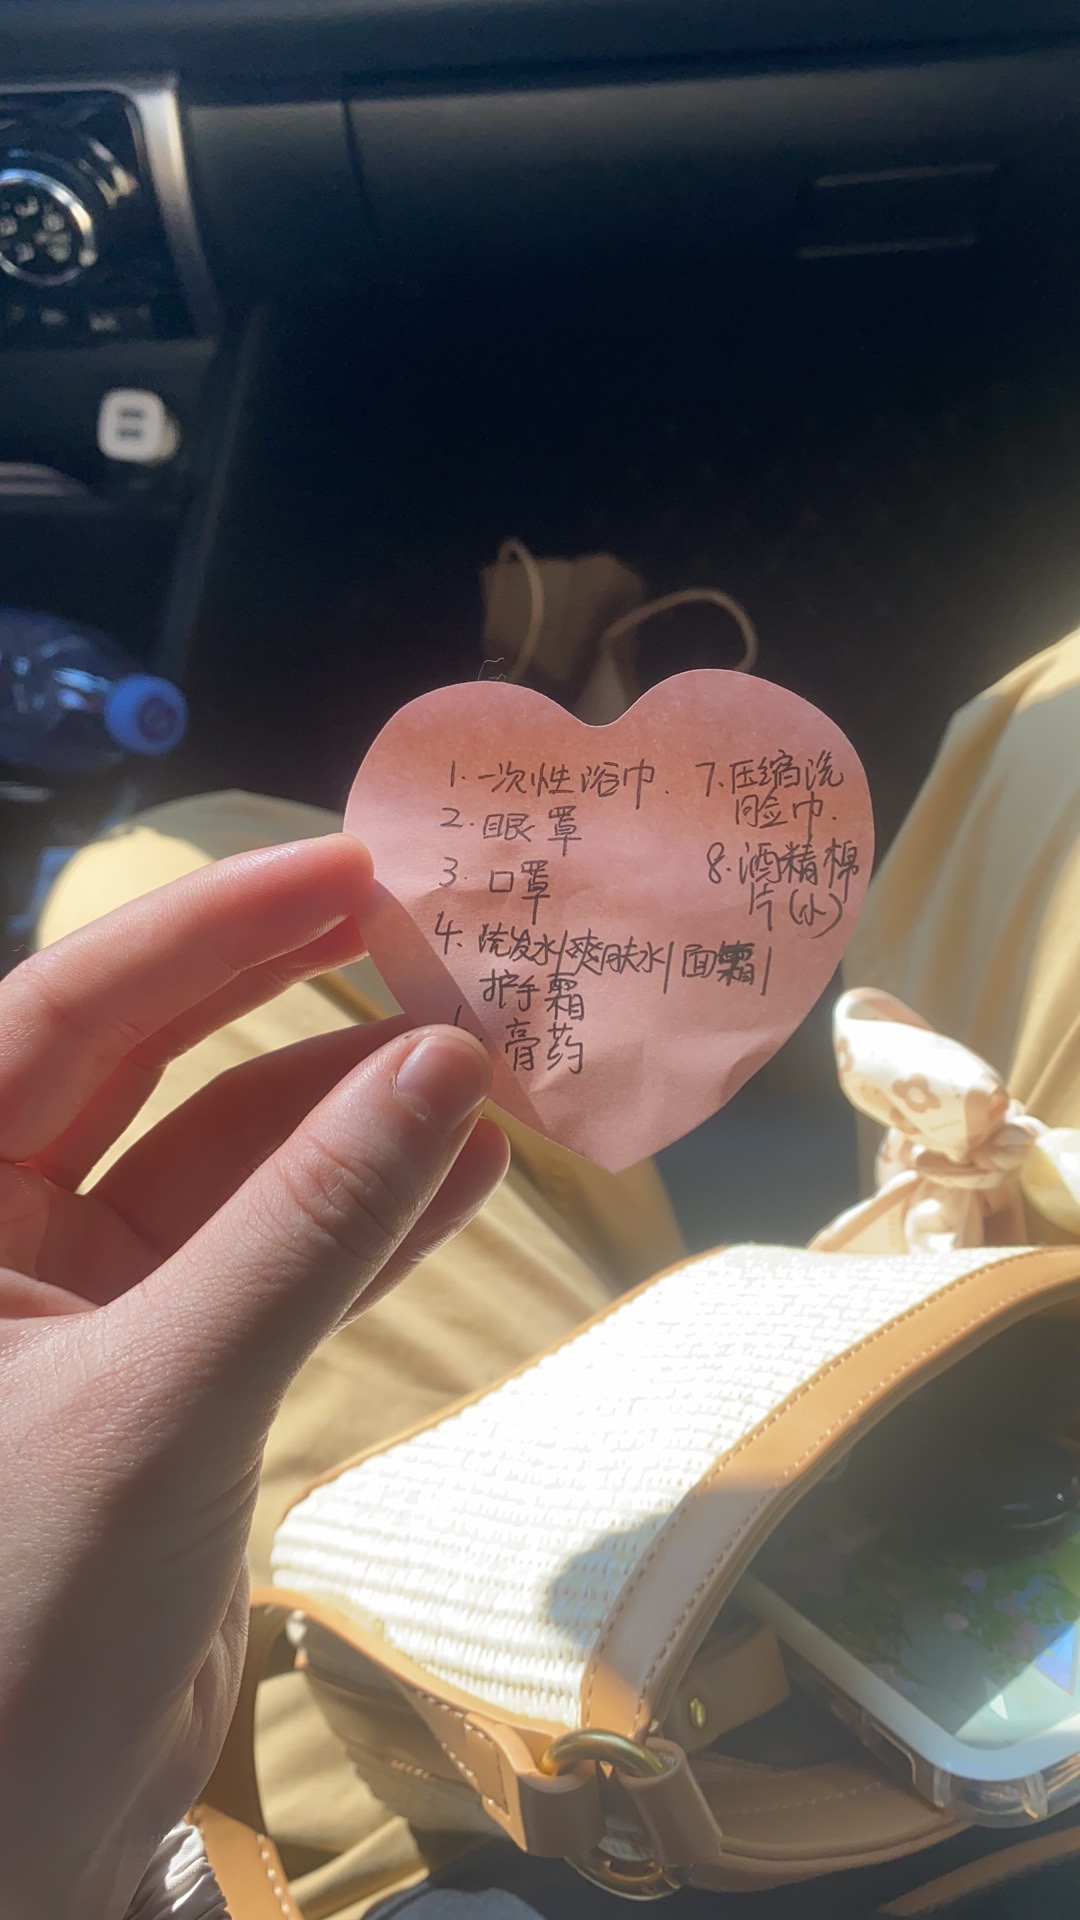 1. 一次性浴巾.
2. 眼罩
3. 口罩
4. 洗发水/爽肤水/面霜/
护手霜
膏药
7. 压缩洗
脸巾.
8. 酒精棉
片(小)